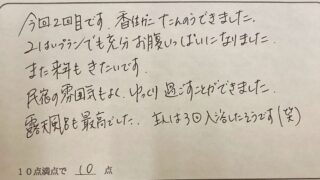 今回2回目です。香住ガニたんのうできました。
2はいプランでも充分お腹いっぱいになりました。
また来年もきたいです。
民宿の雰囲気もよく、ゆっくり過ごすことができました。
露天風呂も最高でした。主人は3回入浴したそうです(笑)
10点満点で 10 点